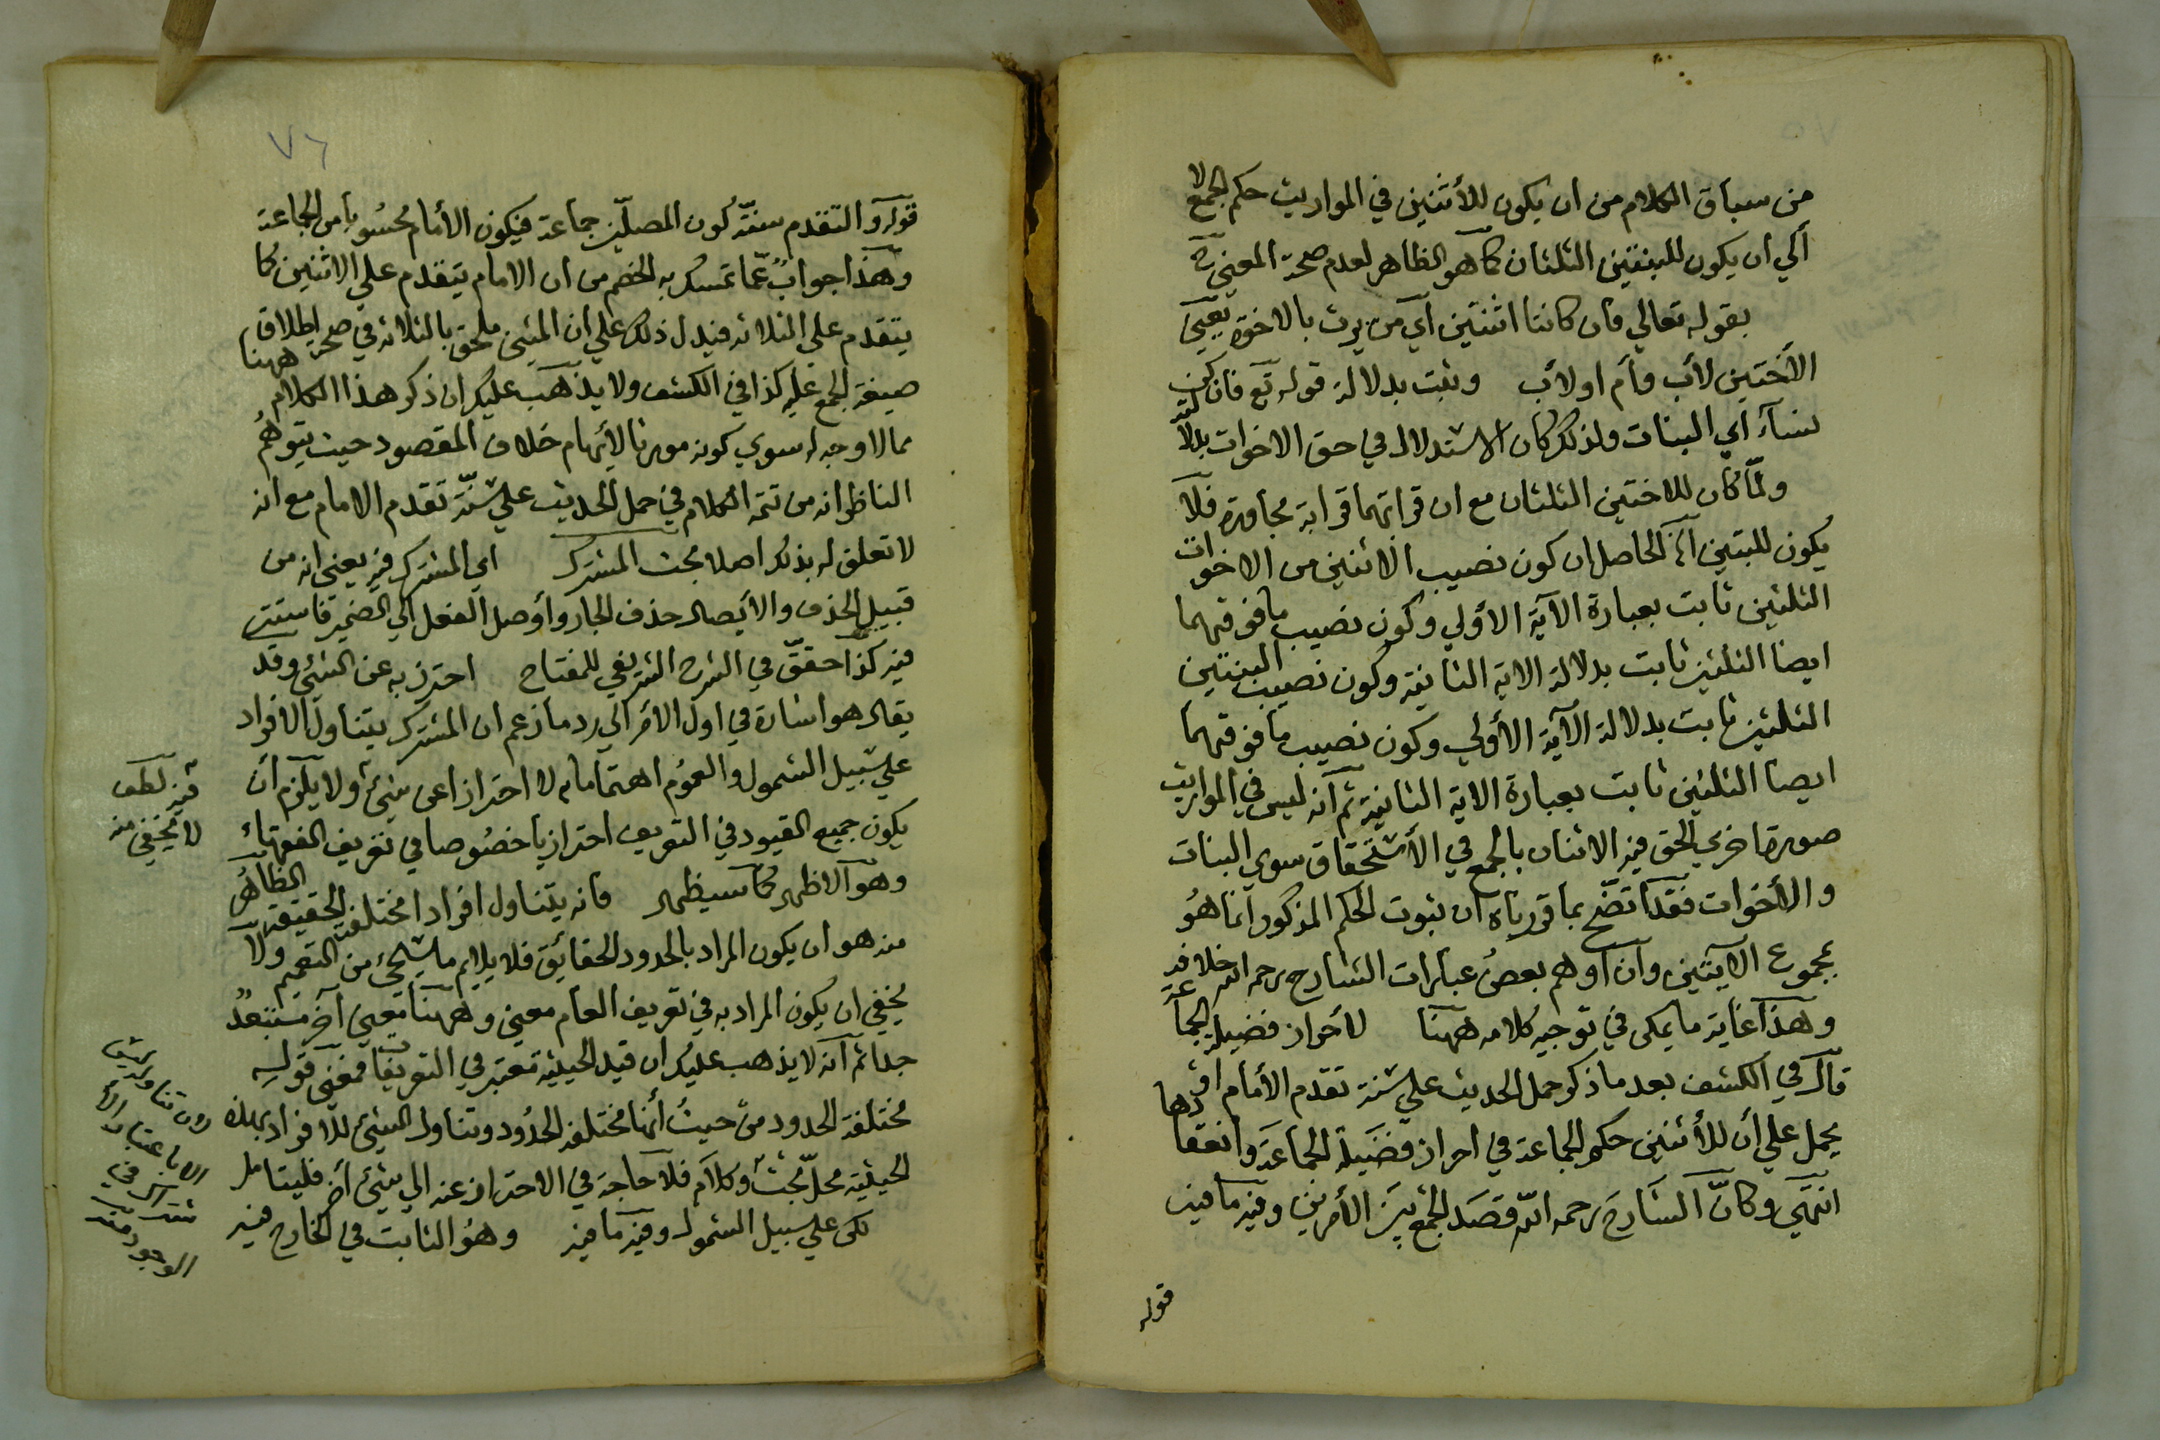 من سباق الكلام من ان يكون للأثنين في المواريث حكم الجمع لا
الي ان يكون للبنتين الثلثان كما هو الظاهر لعدم صحة المعني ح
بقوله تعالي فان كانتا اثنتين اي من يرث بالاخوة يعني
الأختين لأب وأم او لأب وثبت بدلالة قوله تع فان كن
نسآء اي البنات ولذلك كان الاستدلال في حق الاخوات بدلا لته
ولمّا كان للاختين الثلثان مع ان قرابتهما قرابة مجاورة فلا
يكون للبنتين الخ الحاصل ان كون نصيب الاثنين من الاخوات
الثلثين ثابت بعبارة الآية الأولي وكون نصيب ما فوقهما
ايضا الثلثين ثابت بدلالة الاية الثانية وكون نصيب البنتين
الثلثين ثابت بدلالة الآية الأولي وكون نصيب ما فوقهما
ايضا الثلثين ثابت بعبارة الاية الثانية ثم آنه ليس في المواريث
صورة اخري الحق فيه الاثنان بالجمع في الأستحقاق سوي البنات
والأخوات فقد اتضح بما قررناه ان ثبوت الحكم المذكور انما هُو
بمجموع الآيتين وآن أوهم بعض عبارات الشارح رحمه الله خلافه
وهذا غاية ما يمكن في توجيه كلامه ههنا لاحراز فضيلة الجماعة
قآل في الكشف بعد ما ذكر حمل الحديث علي سنة تقدم الأمام او
يحمل علي أن للأثنين حكم الجماعة في احراز فضيلة الجماعَة وانعقادها
انتهي وكانّ الشارح رحمه الله قصَد الجمع بين الأمرين وفيه ما فيه
قوله
٧٦
قوله والتقدم سنّة كون المصلّين جماعة فيكون الأمام محسُوبا من الجماعة
وهذا جوابٌ عمّا تمسك به الخصم من ان الامام يتقدم علي الاثنين كما
يتقدم علي الثلاثة فيدل ذلك علي ان المثني ملحق بالثلاثة في صحة اطلاق
صيغة الجمع عليه كذا في الكشف ولا يذهب عليك ان ذكر هذا الكلام ههنا
مما لا وجه له سوي كونه مورثا لأيهام خلاف المقصود حيث يتوهمُ
الناظر انه من تتمة الكلام في حمل الحديث علي سنّة تقدم الامام مع انه
لا تعلق له بذلك اصلا مبحث المشترك اي المشترك فيه يعني انه من
قبيل الحذف والأيصال حذف الجار وأوصل الفعل الي الضمير فاستتر
فيه كذا حققّ في الشرح الشريفي للمفتاح احترز به عن الشئ وقد
يقال هو اشارة في اول الأمر الي رد ما زعم ان المشترك يتناول الافراد
علي سبيل الشمول والعموم اهتماما به لا احترازا عن شئ ولا يلزم ان
يكون جميع القيود في التعريف احترازيا خصُوصا في تعريف الفقهاء
وهو الاظهر كما سيظهر فانه يتناول افرادا مختلفة الحقيقة الظاهرُ
منه هو ان يكون المراد بالحدود الحقائق فلا يلايم ما سيجئ من التعميم ولا
يخفي ان يكون المراد به في تعريف العام معني وههنا معني آخر مستبعدٌ
جدا ثم آنه لا يذهب عليك ان قيد الحيثية تعتبر في التعريفا فمعني قوله
مختلفة الحدود من حيثُ أنها مختلفة الحدُود وتناول الشئ للافراد بهذه
الحيثية محلّ بحث وكلام فلا حاجة في الاحتراز عنه الي شئ أخر فليتامل
لكن علي سبيل الشمول وفيه ما فيه وهُو الثابت في الخارج فيه
فيه لطف
لا يخفي منه
الوجود منه